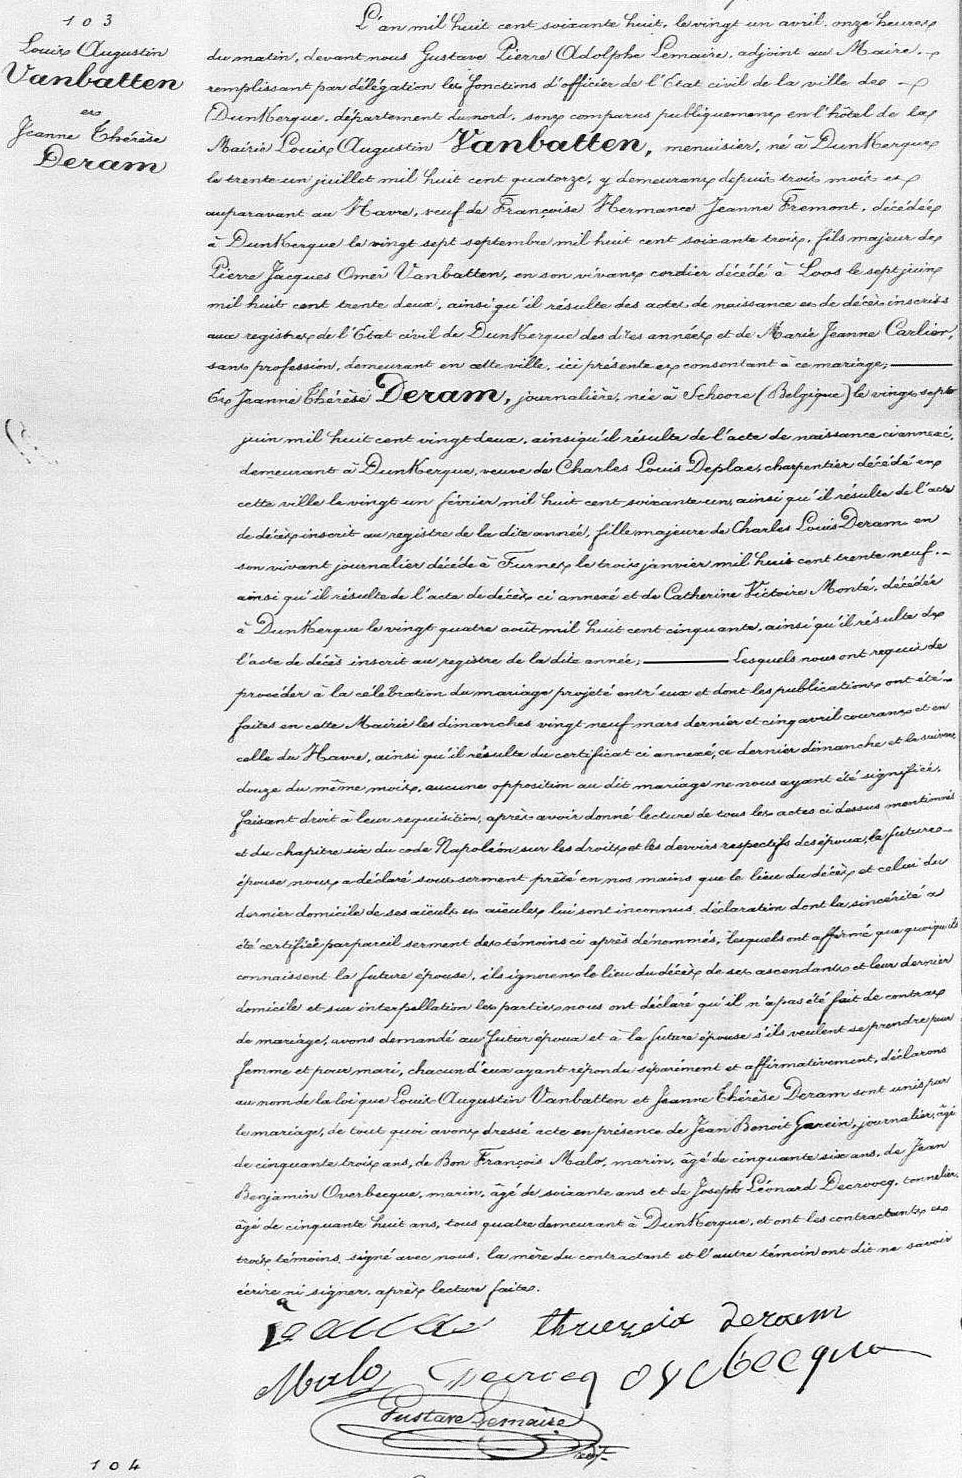 103
Louis Augustin
Vanbatten
et
Jeanne Thérèse
Deram
L'an mil huit cent soixante huit, le vingt un avril, onze heures
du matin, devant nous Gustave Pierre Adolphe Lemaire, adjoint au Maire,
remplissant par délégation les fonctions d'officier de l'Etat civil de la ville de
DunKerque, département du nord, sont comparus publiquement en l'hôtel de la
Mairie Louis Augustin Vanbatten, menuisier, né à DunKerque
le trente un juillet mil huit cent quatorze, y demeurant depuis trois mois et
auparavant au Havre, veuf de Françoise Hermance Jeanne Fremont, décédée
à DunKerque le vingt sept septembre mil huit cent soixante trois, fils majeur de
Pierre Jacques Omer Vanbatten, en son vivant cordier décédé à Loos le sept juin
mil huit cent trente deux, ainsi qu'il résulte des actes de naissance et de décès inscrits
aux registres de l'Etat civil de DunKerque des dites années et de Marie Jeanne Carlier,
sans profession, demeurant en cette ville, ici présente et consentant à ce mariage;
Et Jeanne Thérèse Deram, journalière, née à Schoore (Belgique) le vingt sept
juin mil huit cent vingt deux, ainsi qu'il résulte de l'acte de naissance ci annexé,
demeurant à DunKerque, veuve de Charles Louis Deplae, charpentier décédé en
cette ville le vingt un février mil huit cent soixante un, ainsi qu'il résulte de l'acte
de décès inscrit au registre de la dite année, fille majeure de Charles Louis Deram en
son vivant journalier décédé à Furnes le trois janvier mil huit cent trente neuf,
ainsi qu'il résulte de l'acte de décès ci annexé et de Catherine Victoire Monté, décédée
à DunKerque le vingt quatre août mil huit cent cinquante, ainsi qu'il résulte de
l'acte de décès inscrit au registre de la dite année; Lesquels nous ont requis de
procéder à la célébration du mariage projeté entr'eux et dont les publications ont été
faites en cette Mairie les dimanches vingt neuf mars dernier et cinq avril courant et en
celle du Havre, ainsi qu'il résulte du certificat ci annexé, ce dernier dimanche et le suivant
douze du même mois, aucune opposition au dit mariage ne nous ayant été signifiée,
faisant droit à leur requisition, après avoir donné lecture de tous les actes ci dessus mentionnés
et du chapitre six du code Napoléon sur les droits et les devoirs respectifs des époux, la future
épouse nous a déclaré sous serment prêté en nos mains que le lieu du décès et celui du
dernier domicile de ses aïeuls et aïeules lui sont inconnus, déclaration dont la sincérité a
été certifiée par pareil serment des témoins ci après dénommés, lesquels ont affirmé que quoiqu'ils
connaissent la future épouse, ils ignorent le lieu du décès de ses ascendants et leur dernier
domicile et sur interpellation les parties nous ont déclaré qu'il n'a pas été fait de contrat
de mariage, avons demandé au futur époux et à la future épouse s'ils veulent se prendre pour
femme et pour mari, chacun d'eux ayant répondu séparément et affirmativement, déclarons
au nom de la loi que Louis Augustin Vanbatten et Jeanne Thérèse Deram sont unis par
le mariage, de tout quoi avons dressé acte en présence de Jean Benoit Garein, journalier, âgé
de cinquante trois ans, de Bon François Malo, marin, âgé de cinquante six ans, de Jean
Benjamin Overbecque, marin, âgé de soixante ans et de Joseph Léonard Decroocq, tonnelier,
âgé de cinquante huit ans, tous quatre demeurant à DunKerque, et ont les contractants et
trois témoins signé avec nous, la mère du contractant et l'autre témoin ont dit ne savoir
écrire ni signer, après lecture faite.
deram
Malo Decroocq
Gustave Lemaire
104